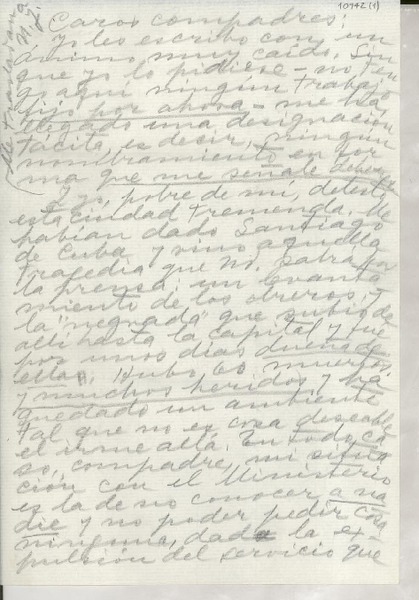 10142 (1)
Caros compadres:
Yo les escribo con un
ánimo muy caído. Sin
que yo lo pidiese - no ten
go aquí ningún trabajo
fijo por ahora - me ha
llegado una designación
tácita, es decir, ningún
nombramiento en for
ma que me señale
Y yo, pobre de mí, detesto
esta ciudad tremenda. Me
habían dado Santiago
de Cuba y vino aquella
tragedia que Ud. sabrá por
la prensa: un levanta
miento de los obreros y
la "negrada" que subió de
allí hasta la capital y fue
por unos días dueña de
ella. Hubo 60 muertos
y muchos heridos y ha
quedado un ambiente
tal que no es cosa deseable
el irme allá. En todo ca
so, compadre, mi situa
ción con el Ministerio
es la de no conocer a na
die y no poder pedir cosa
ninguna, dada la ex-
pulsión del servicio que